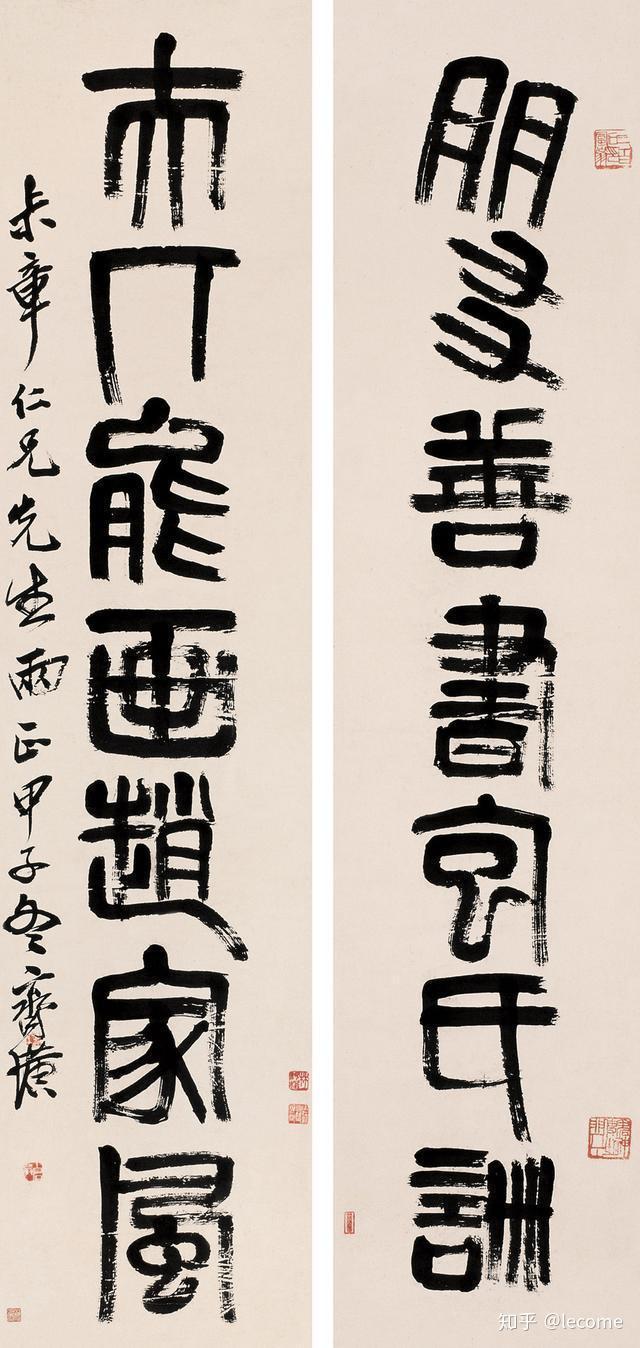 朋友善書氏訓
夫人能画趙家風
尗章仁兄先生兩正甲子冬齊璜
知乎 @lecome